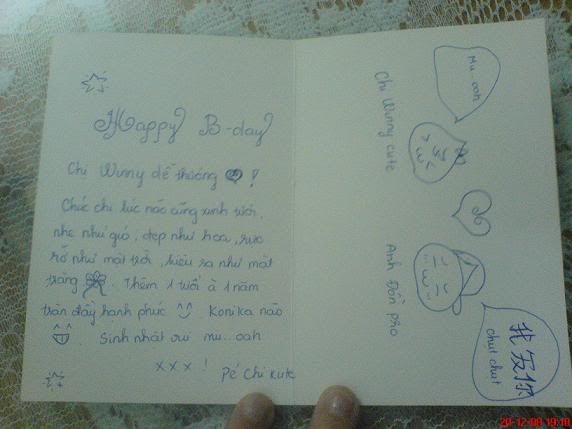 Happy B-day
Chị Winny dễ thương !
Chúc chị lúc nào cũng xinh tươi,
nhẹ như gió, đẹp như hoa, rực
rỡ như mặt trời, kiêu sa như mặt
trăng. Thêm 1 tuổi à 1 năm
tràn đầy hạnh phúc ^^ Konika nào
Sinh nhật vui mu...oah
x x x !
Pé Chi kute
Mu..oah
Chị Winny cute
Anh Đôn pro
我爱你
chut chut
20-12-08 19:18